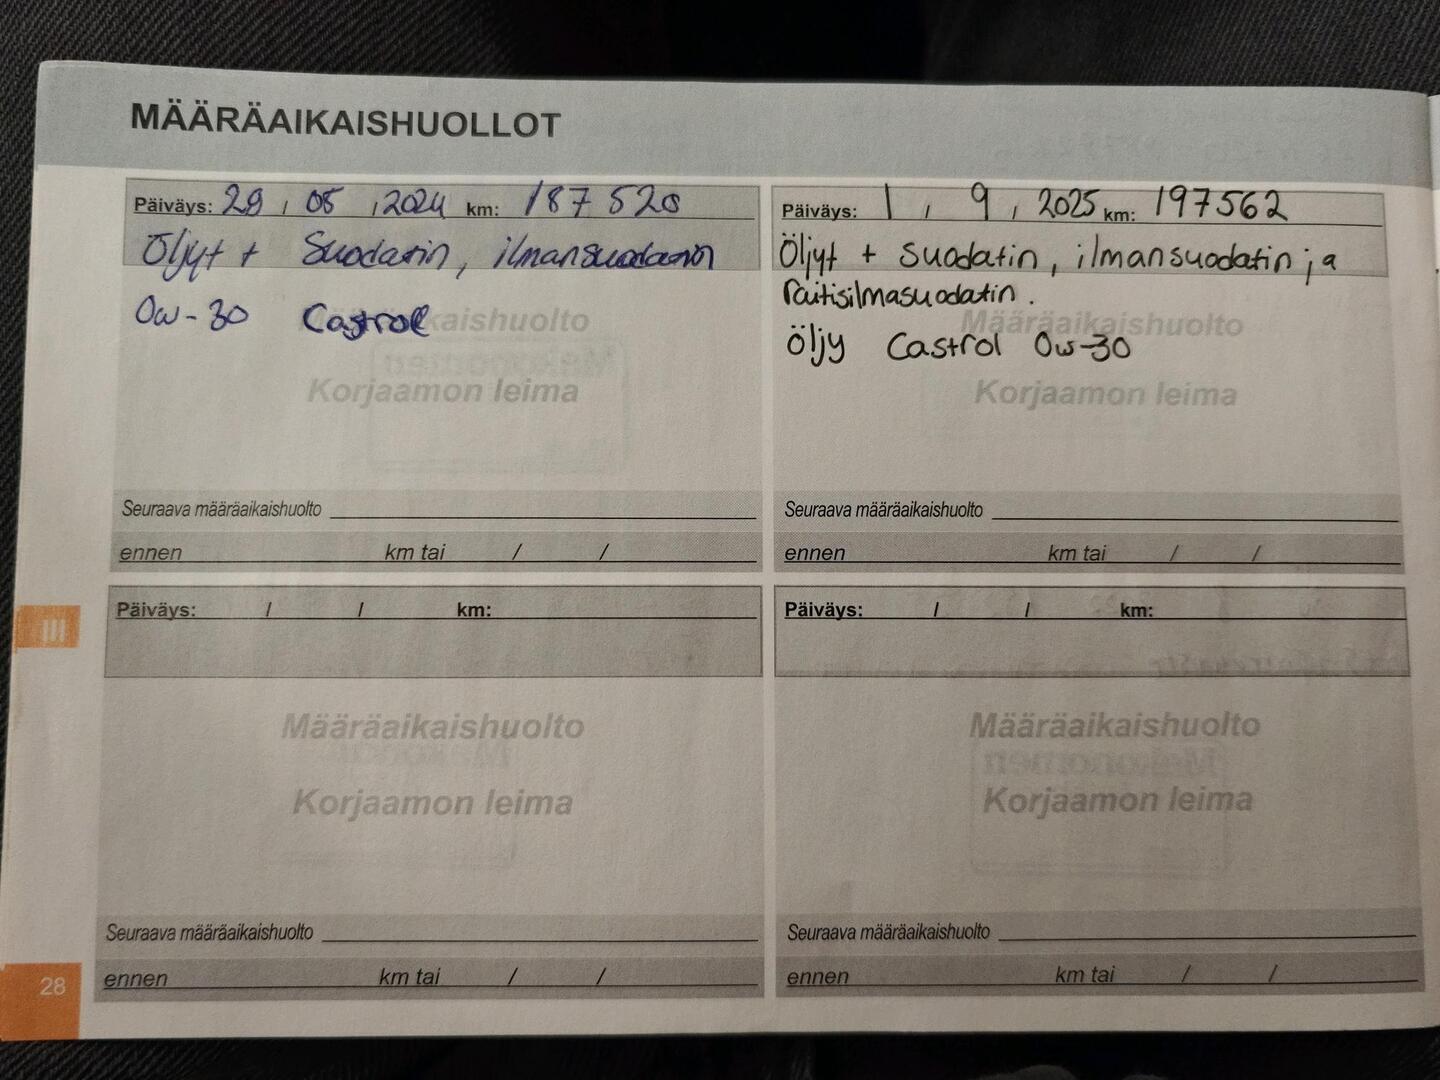 MÄÄRÄAIKAISHUOLLOT
Päiväys: 29 / 05 / 2024 km: 187 520
Öljyt + Suodatin, ilmansuodatin
0w-30 Castrol
Määräaikaishuolto
Korjaamon leima
Seuraava määräaikaishuolto
ennen km tai / /
Päiväys: 1 / 9 / 2025 km: 197562
Öljyt + suodatin, ilmansuodatin ja
raitisilmasuodatin.
Määräaikaishuolto
öljy Castrol 0w-30
Korjaamon leima
Seuraava määräaikaishuolto
ennen km tai / /
III
Päiväys: / / km:
Määräaikaishuolto
Korjaamon leima
Seuraava määräaikaishuolto
ennen km tai / /
Päiväys: / / km:
Määräaikaishuolto
Korjaamon leima
Seuraava määräaikaishuolto
ennen km tai / /
28